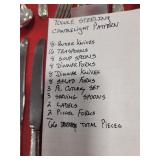 TOWLE STERLING
CANDLELIGHT PATTERN
8 BUTTER KNIVES
16 TEASPOONS
8 SOUP SPOONS
8 DINNER FORKS
8 DINNER KNIVES
8 SALAD FORKS
3 PC. CARVING SET
3 SERVING SPOONS
2 LADLES
2 PICKLE FORKS
66 TOTAL PIECES